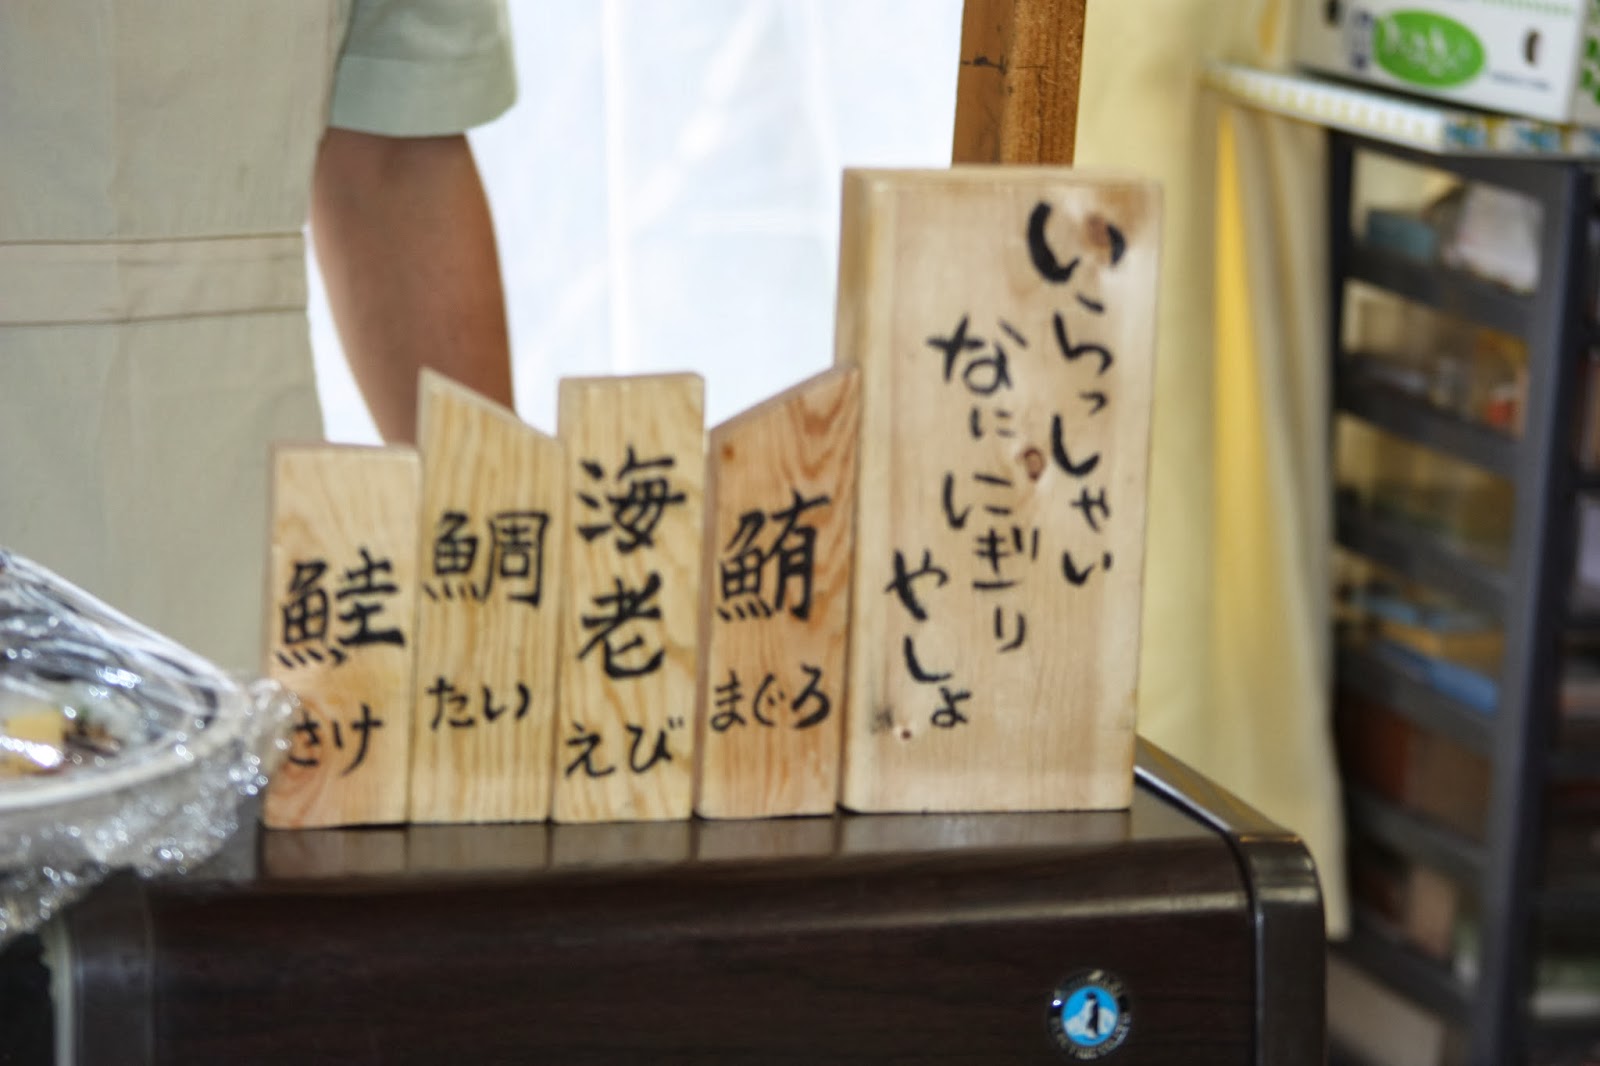 いらっしゃい
なににぎり
やしょ
鮪
まぐろ
海老
えび
鯛
たい
鮭
さけ